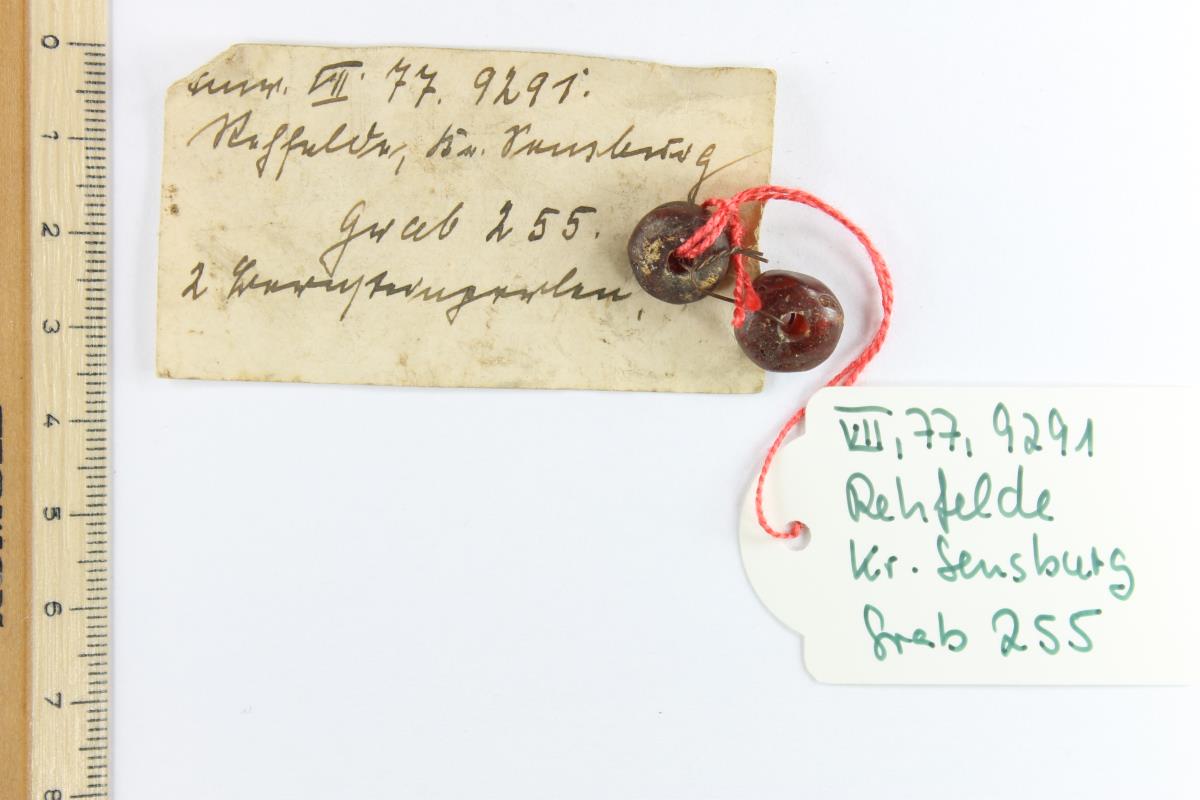 VII. 77. 9291.
Rehfelde, Kr. Sensburg
Grab 255.
2 Bernsteinperlen.
VII, 77, 9291
Rehfelde
Kr. Sensburg
Grab 255
0
1
2
3
4
5
6
7
8